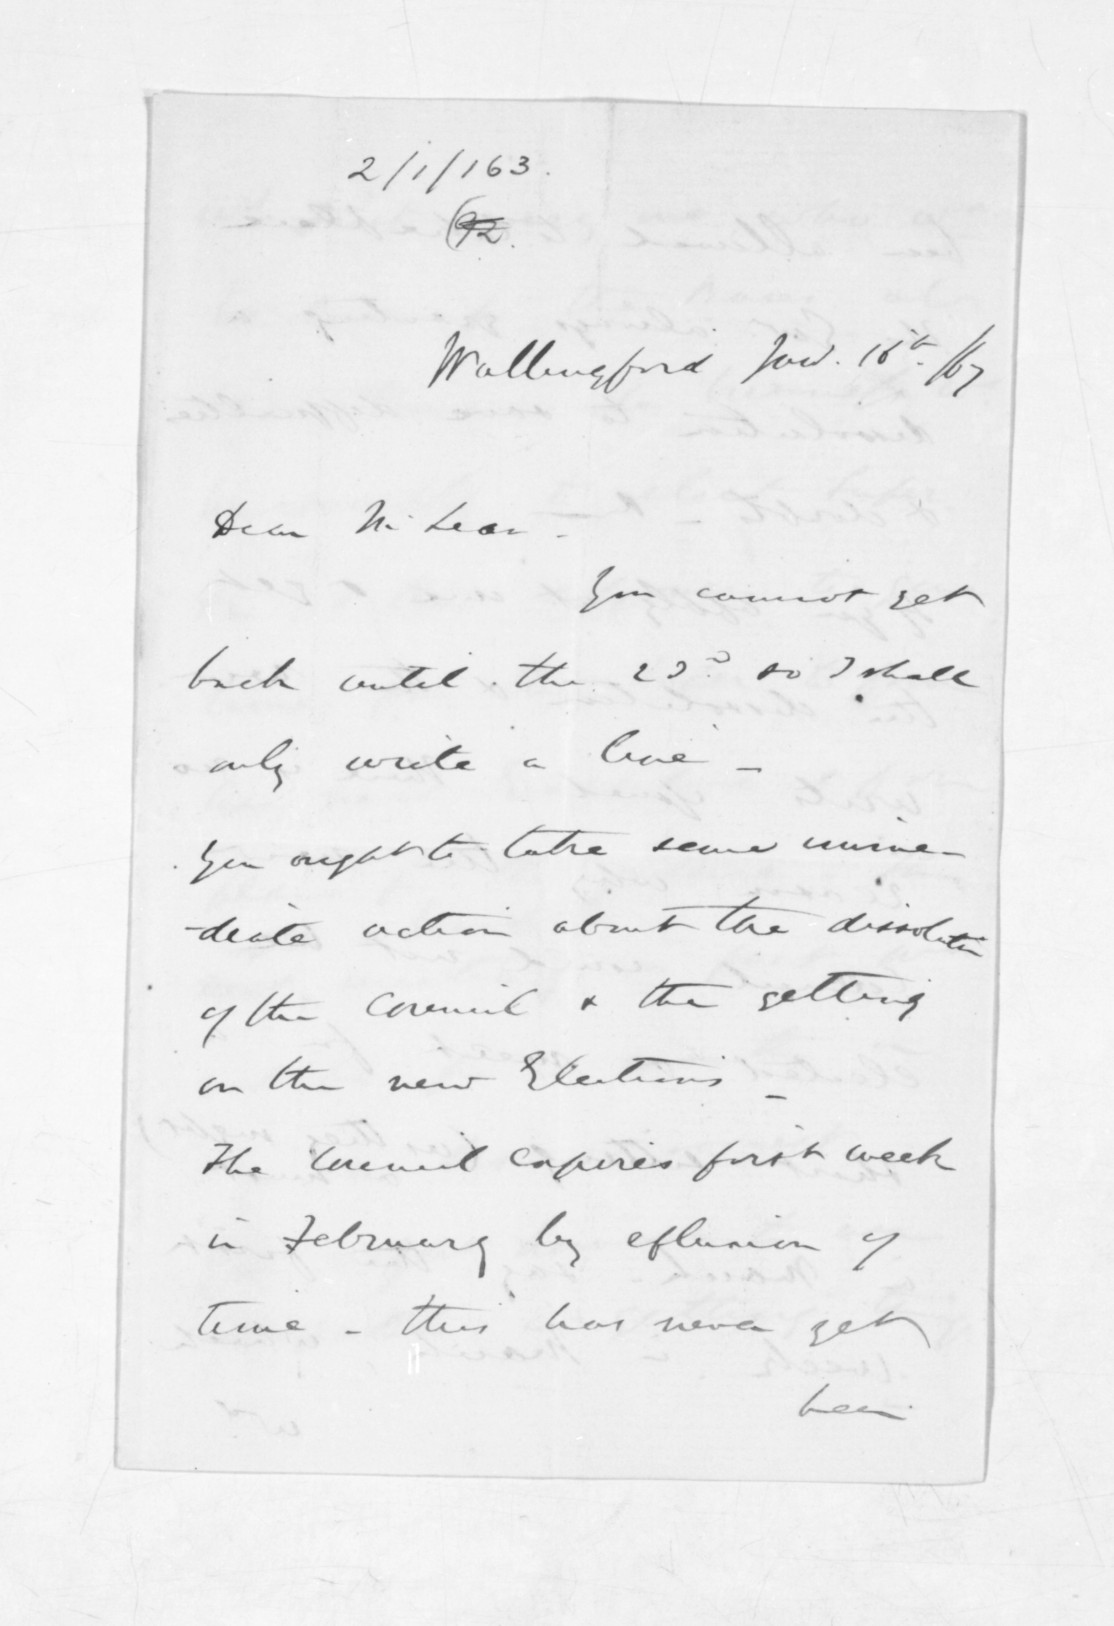 2/1/163.
(92.
Wallingford Jan. 16th /67
Dear McLean -
You cannot get
back until the 23d so I shall
only write a line -
You ought to take some imme-
-diate action about the dissolution
of the Council & the getting
on the new Elections -
The Council expires first week
in February by efluxion of
time - this has never yet
been